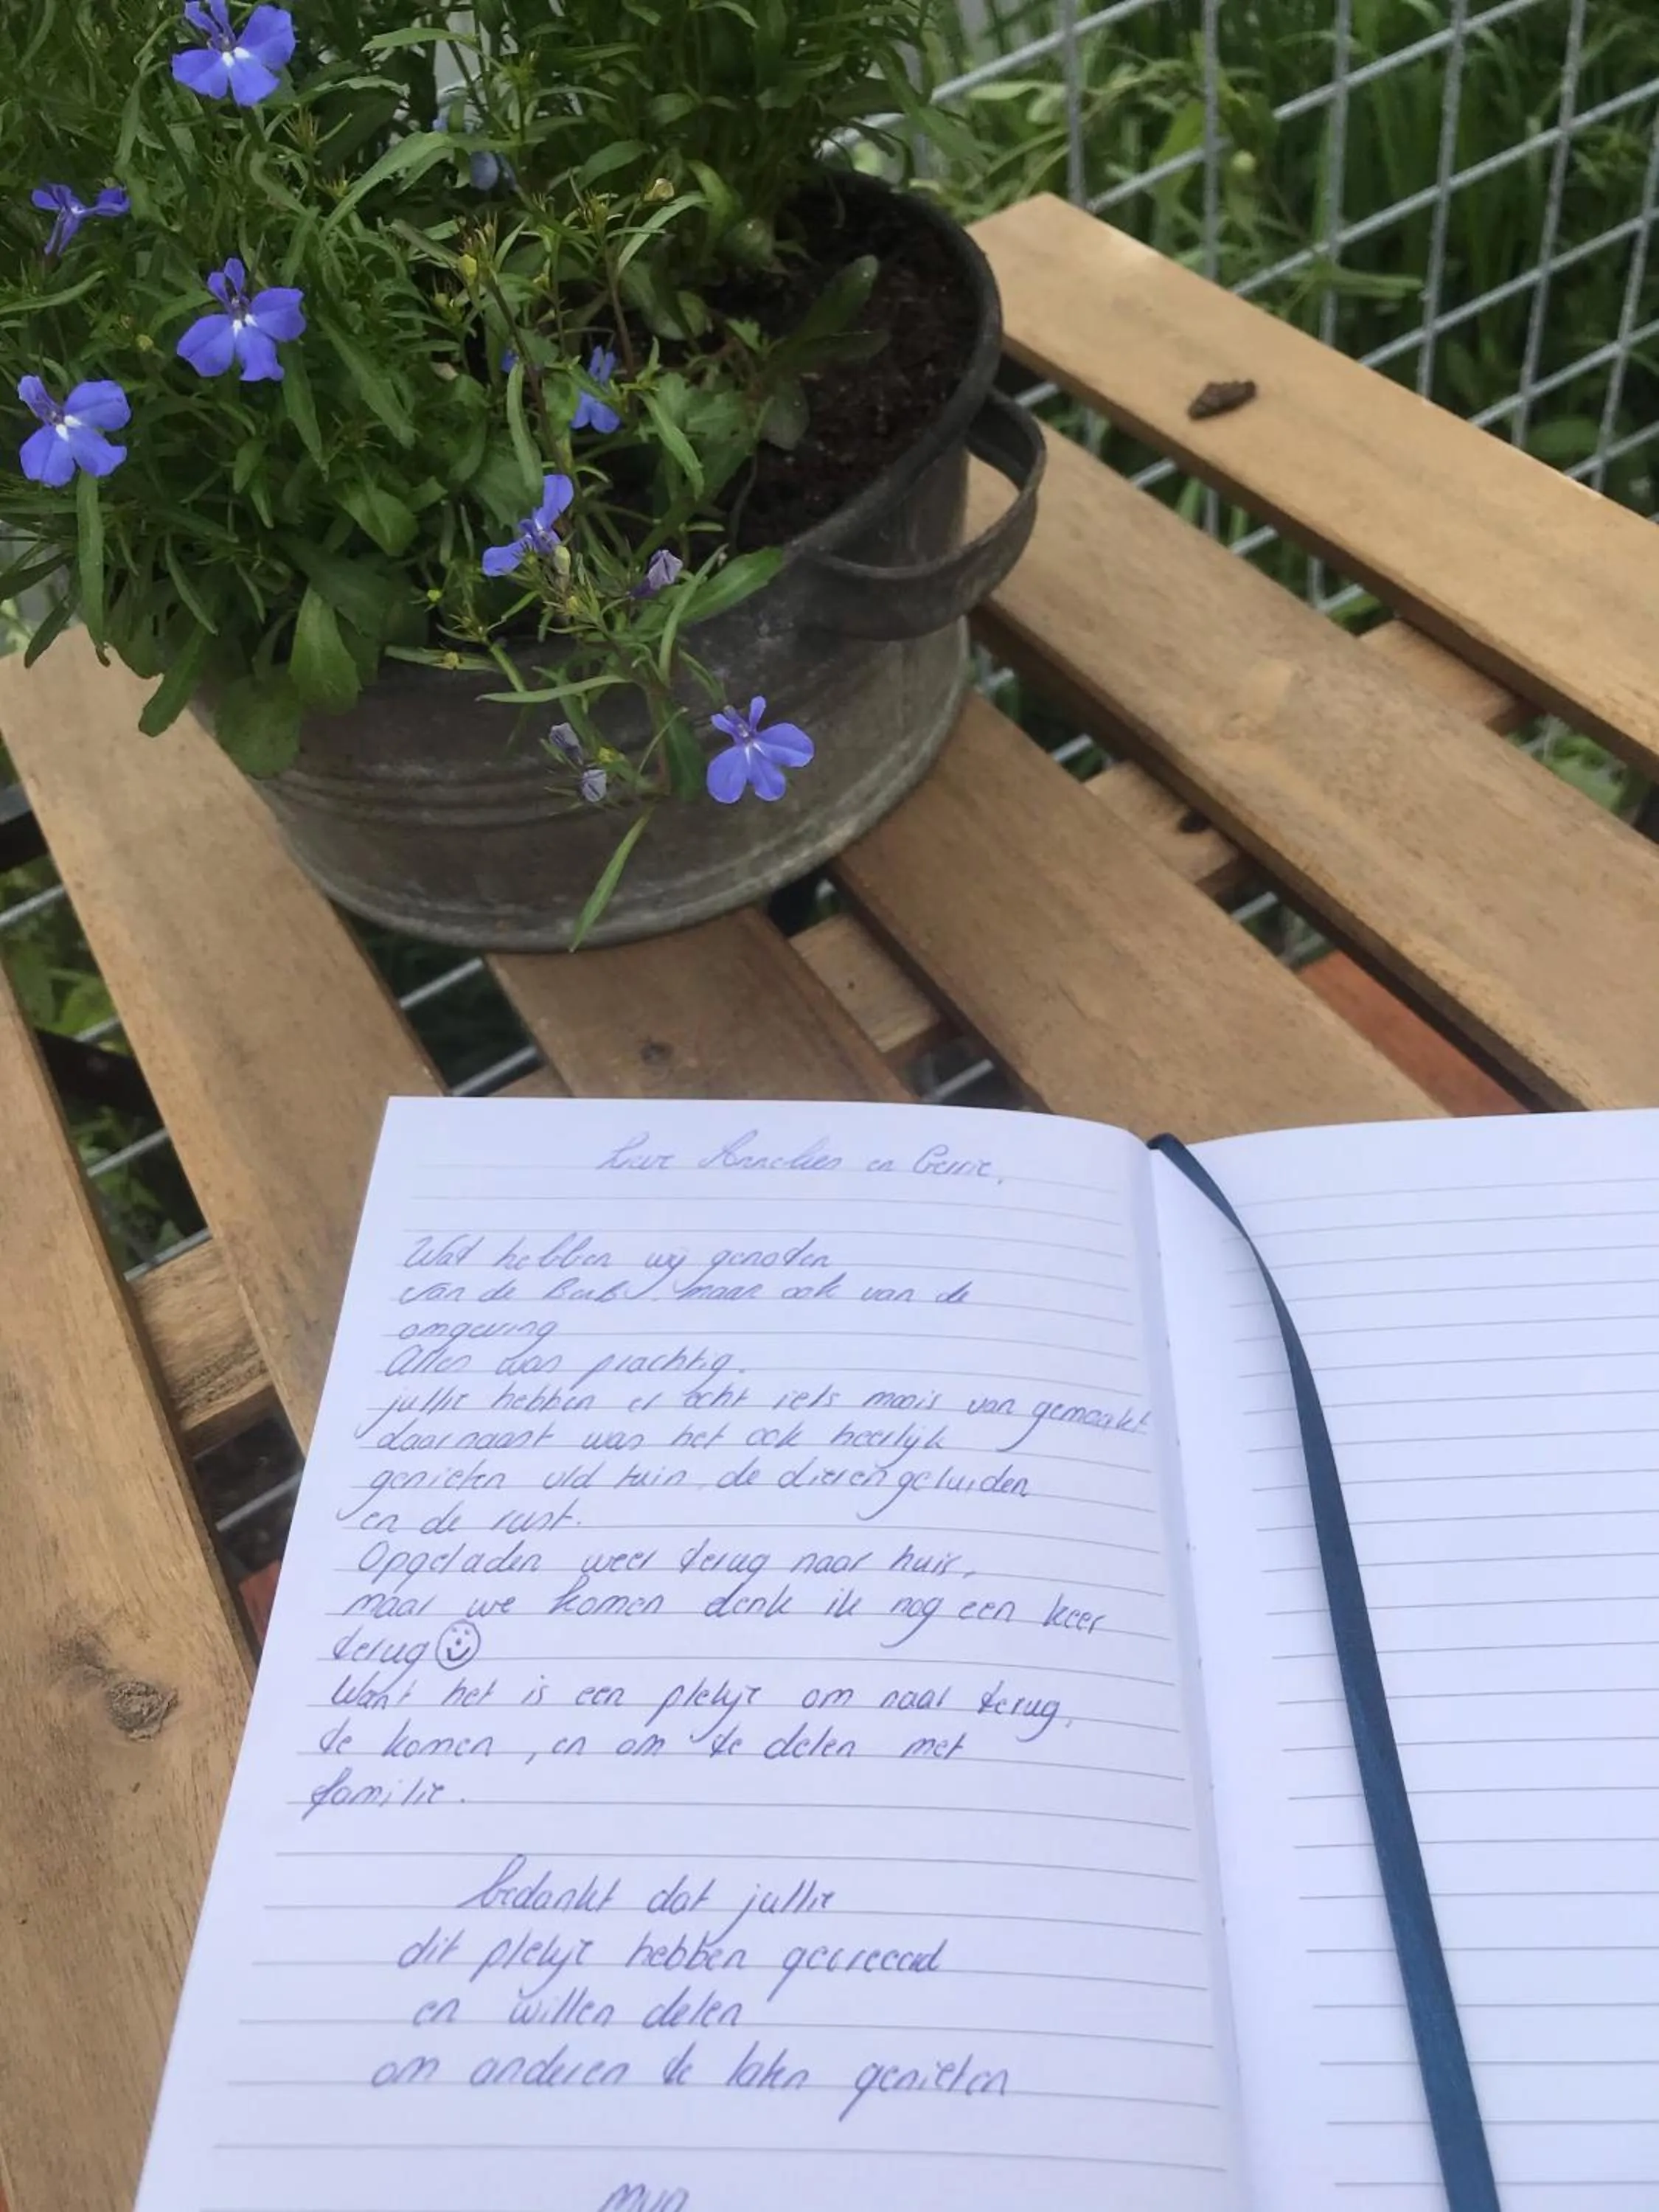 Lieve Annelies en Gerrie,
Wat hebben wij genoten
van de B&B, maar ook van de
omgeving
Alles was prachtig.
jullie hebben er echt iets moois van gemaakt
daarnaast was het ook heerlijk
genieten v/d tuin, de dierengeluiden
en de rust.
Opgeladen weer terug naar huis,
maar we komen denk ik nog een keer
terug
Want het is een plekje om naar terug
te komen, en om te delen met
familie.
bedankt dat jullie
dit plekje hebben gecreeerd
en willen delen
om anderen te laten genieten